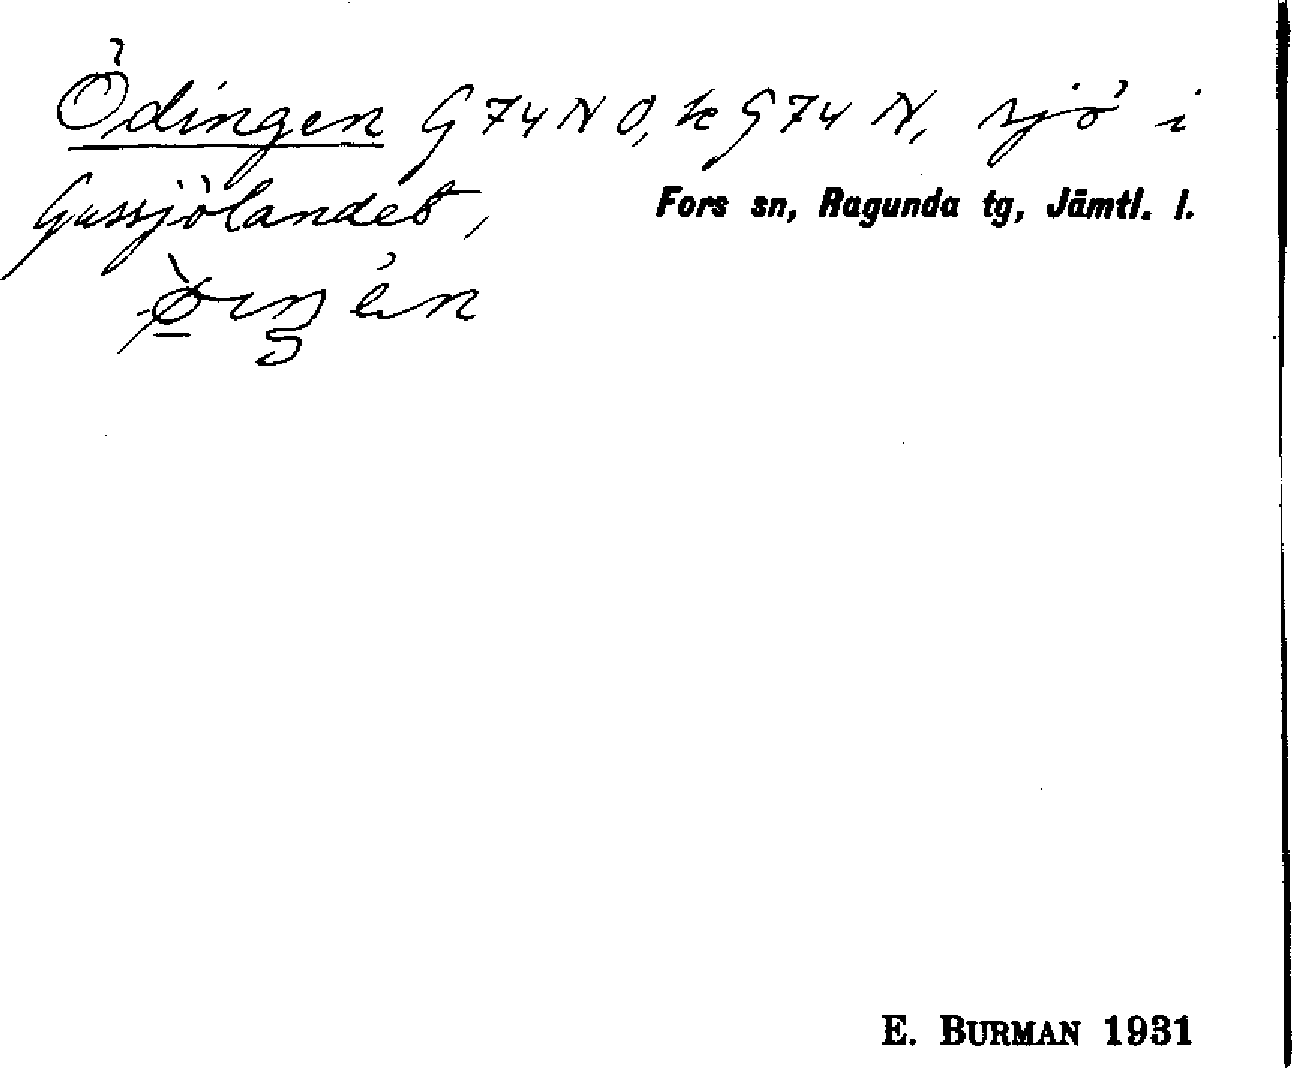 Ödingen G74NO, k G74N, sjö i
Gussjölandet,
Fors sn, Ragunda tg, Jämtl. l.
E. BURMAN 1931